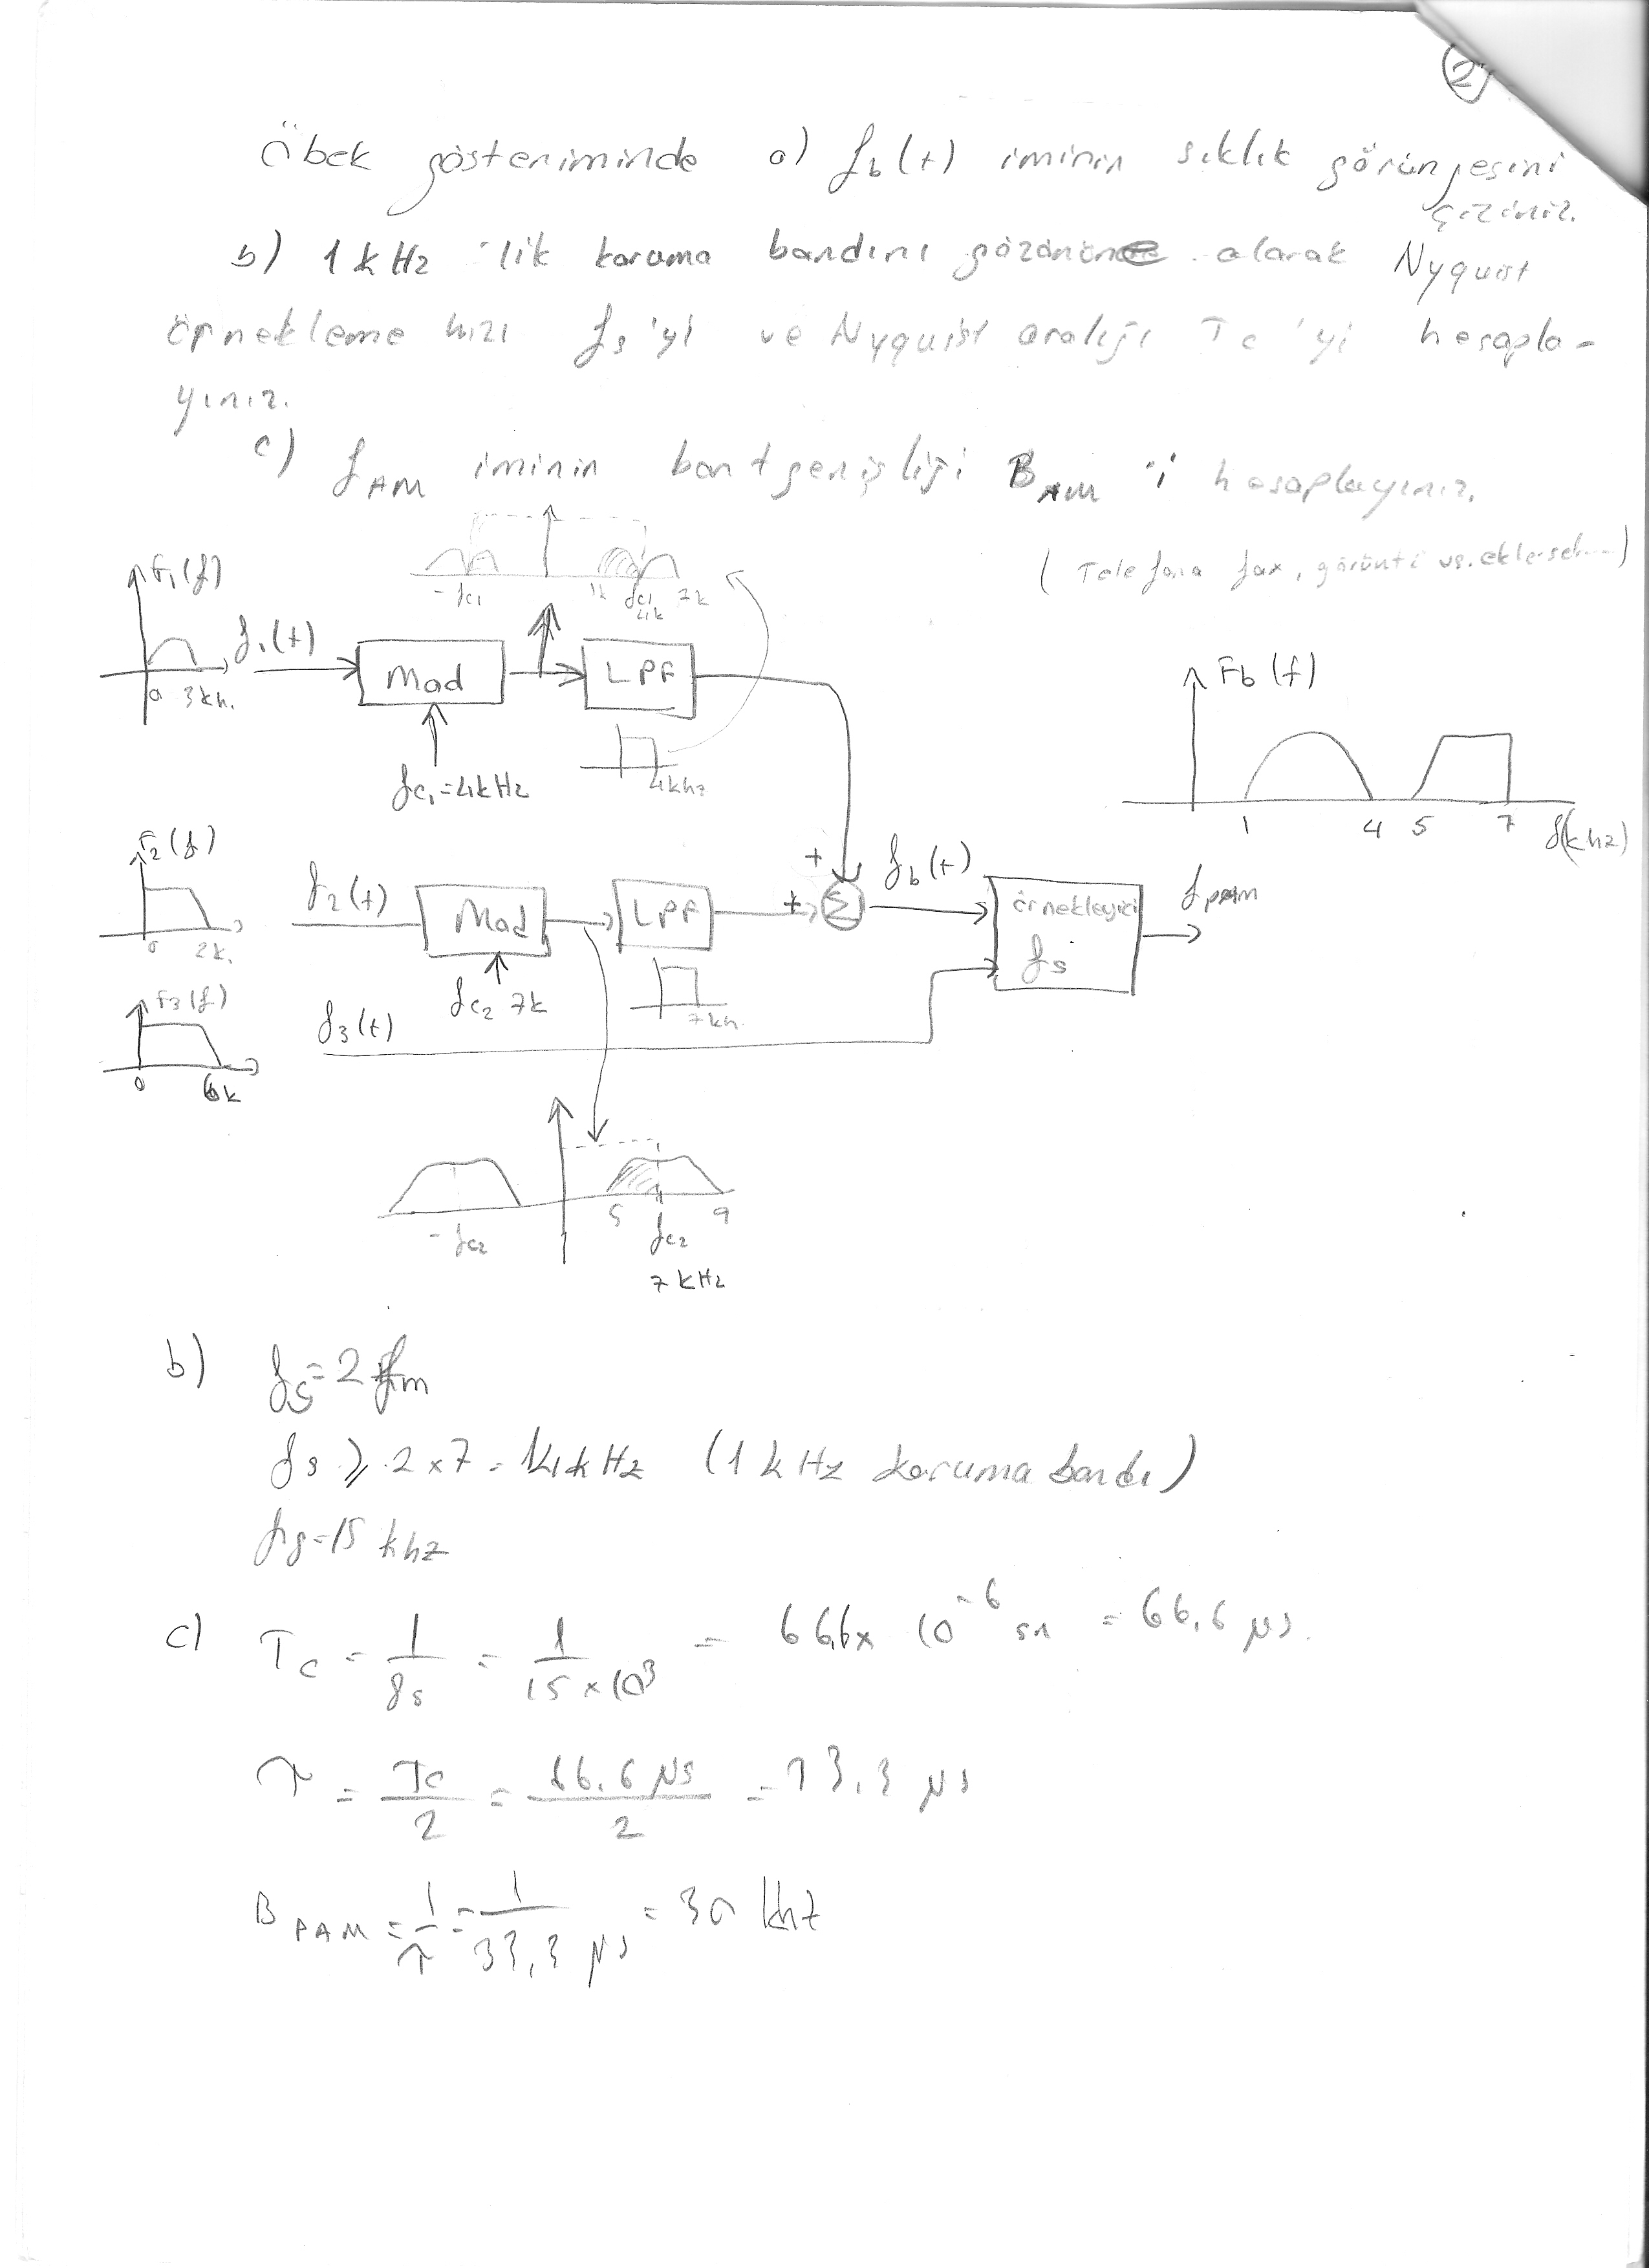 2
Öbek gösteriminde a) fb(t) iminin sıklık görüngesini
çiziniz.
b) 1 kHz 'lik koruma bandını gözönüne alarak Nyquist
örnekleme hızı fs'yi ve Nyquist aralığı Tc'yi hesapla-
yınız.
c) fAM iminin bant genişliği BAM 'i hesaplayınız.
( Telefona fax, görüntü vs. eklersek...)
F1(f)
0 3kh.
f1(t)
Mod
fc1=4kHz
-fc1 1k fc1 7k
4k
LPF
4khz
Fb(f)
1 4 5 7 f(khz)
F2(f)
0 2k.
f2(t)
Mod
fc2 7k
LPF
7kh.
+
+
Σ
fb(t)
örnekleyici
fs
fpam
F3(f)
0 6k
f3(t)
-fc2 5 fc2 9
7 kHz
b) fs=2fm
fs ≥ 2x7=14kHz (1 kHz koruma bandı)
fs=15 khz
c) Tc = 1/fs = 1/15x10³ = 66,6x 10⁻⁶ sn = 66,6 μs.
τ = Tc/2 = 66,6 μs/2 = 33,3 μs
BPAM = 1/τ = 1/33,3 μs = 30 khz